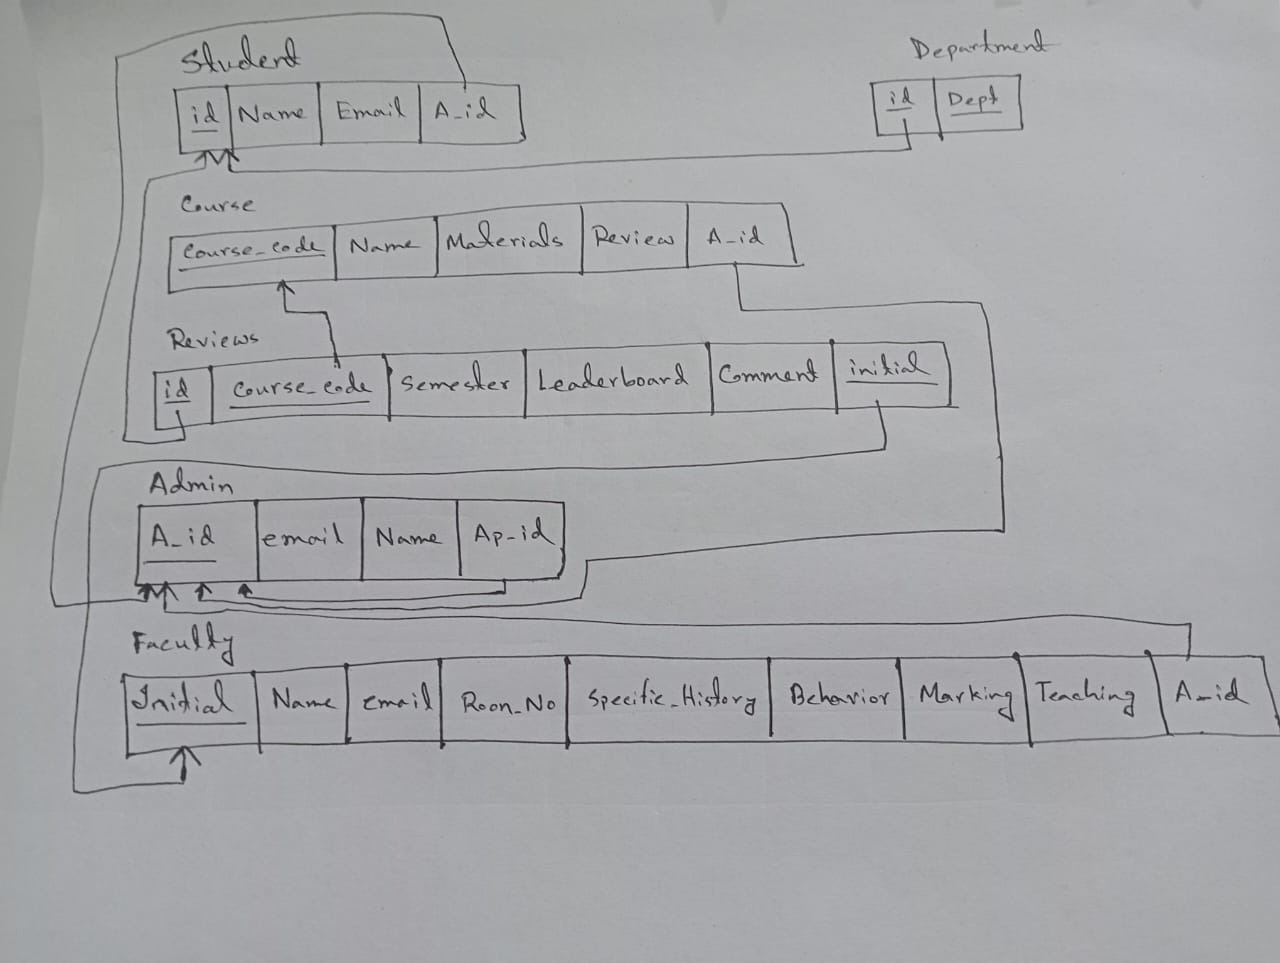 Student
id Name Email A_id
Department
id Dept
Course
Course_code Name Materials Review A_id
Reviews
id Course_code Semester Leaderboard Comment initial
Admin
A_id email Name Ap_id
Faculty
Initial Name email Roon_No Specific_History Behavior Marking Teaching A_id